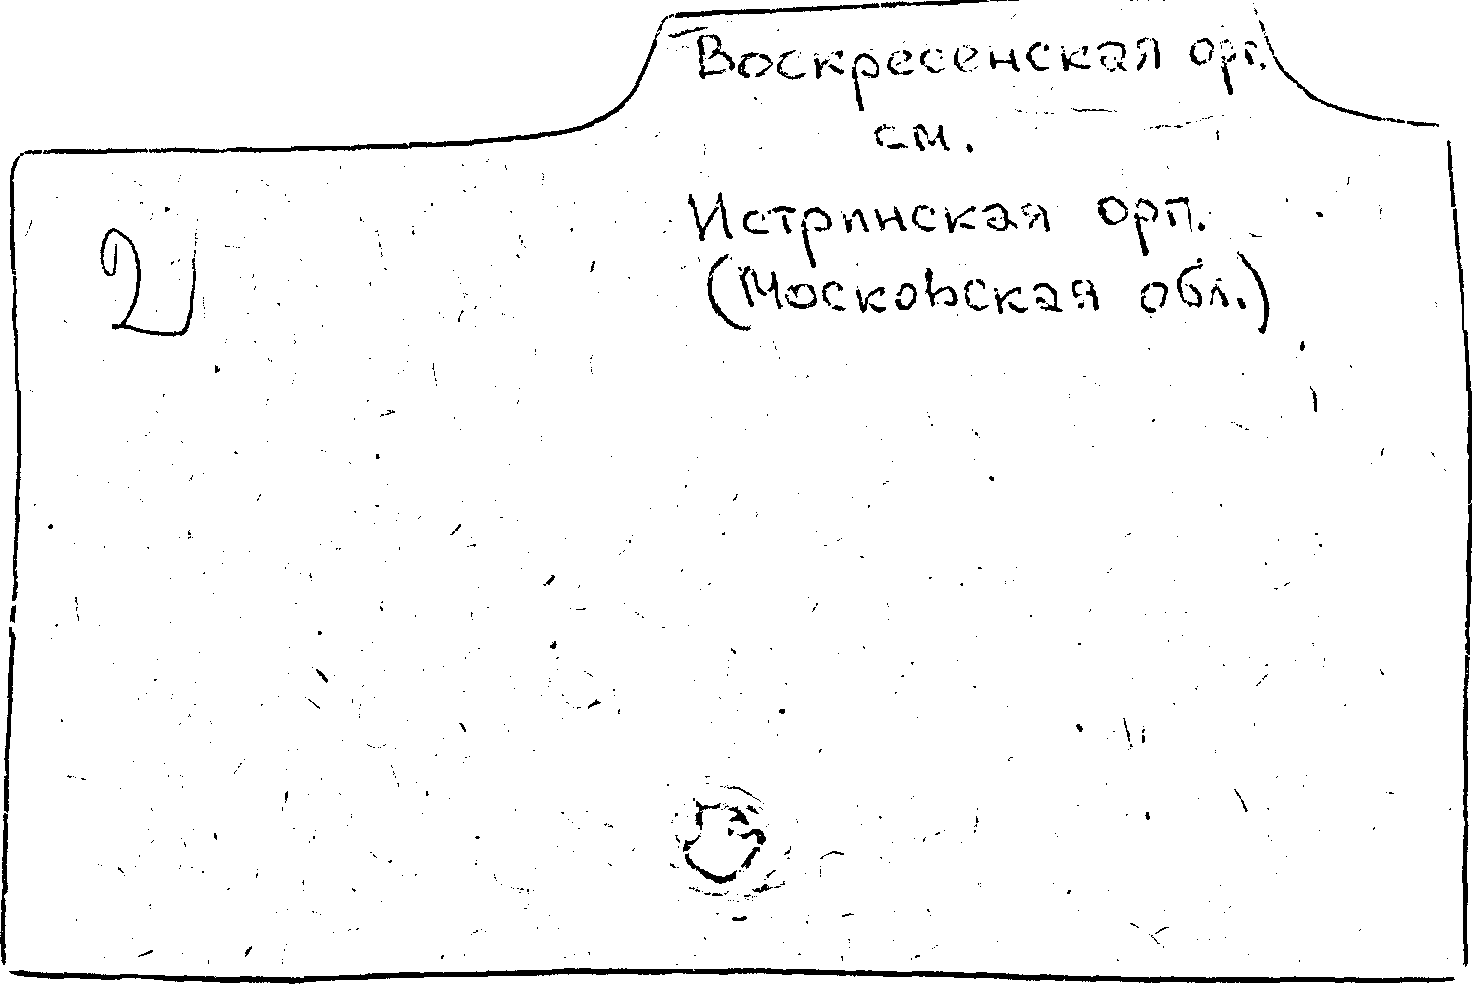 Воскресенская орг.
см.
Истринская орг.
(Московская обл.)
2